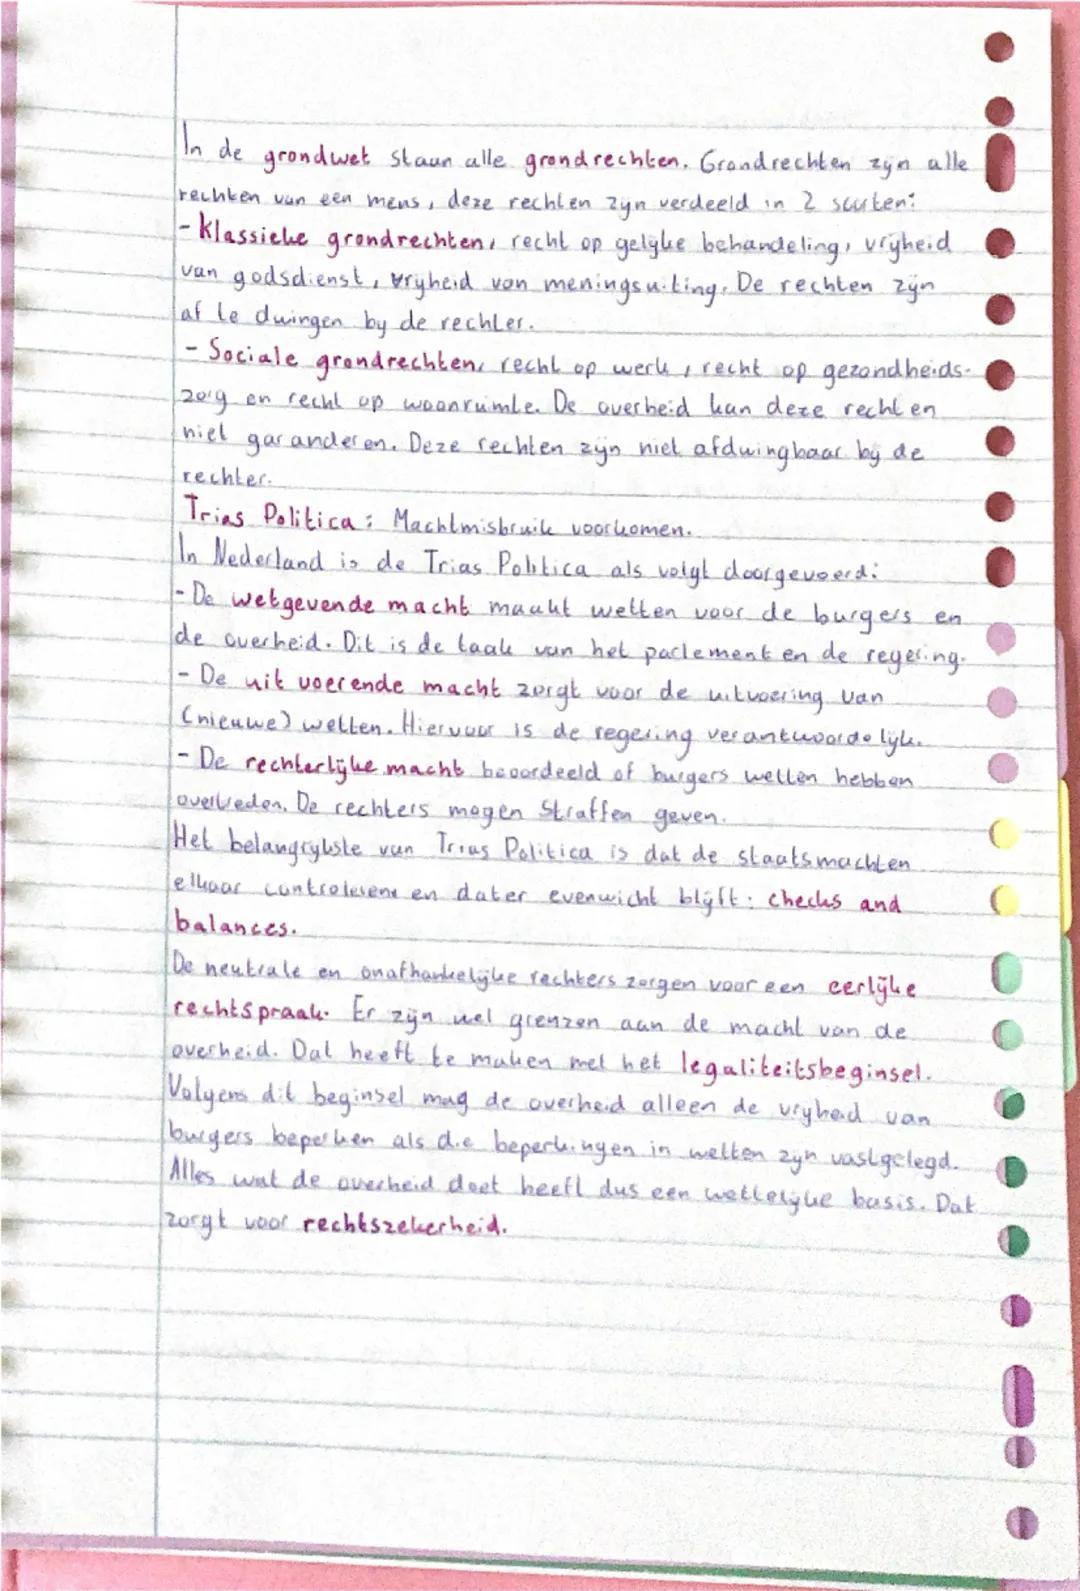 In de grondwet staan alle grondrechten. Grondrechten zijn alle
rechten van een mens, deze rechten zijn verdeeld in 2 soorten:
- Klassieke grondrechten, recht op gelijke behandeling, vrijheid
van godsdienst, vrijheid van meningsuiting. De rechten zijn
af te dwingen bij de rechter.
- Sociale grondrechten, recht op werk, recht op gezondheids-
zorg en recht op woonruimte. De overheid kan deze rechten
niet garanderen. Deze rechten zijn niet afdwingbaar bij de
rechter.
Trias Politica: Machtmisbruik voorkomen.
In Nederland is de Trias Politica als volgt doorgevoerd:
- De wetgevende macht maakt wetten voor de burgers en
de overheid. Dit is de taak van het parlement en de regering.
- De uitvoerende macht zorgt voor de uitvoering van
(nieuwe) wetten. Hiervoor is de regering verantwoordelijk.
- De rechterlijke macht beoordeeld of burgers wetten hebben
overtreden. De rechters mogen straffen geven.
Het belangrijkste van Trias Politica is dat de staatsmachten
elkaar controleren en dat er evenwicht blijft: checks and
balances.
De neutrale en onafhankelijke rechters zorgen voor een eerlijke
rechtspraak. Er zijn wel grenzen aan de macht van de
overheid. Dat heeft te maken met het legaliteitsbeginsel.
Volgens dit beginsel mag de overheid alleen de vrijheid van
burgers beperken als die beperkingen in wetten zijn vastgelegd.
Alles wat de overheid doet heeft dus een wettelijke basis. Dat
zorgt voor rechtszekerheid.